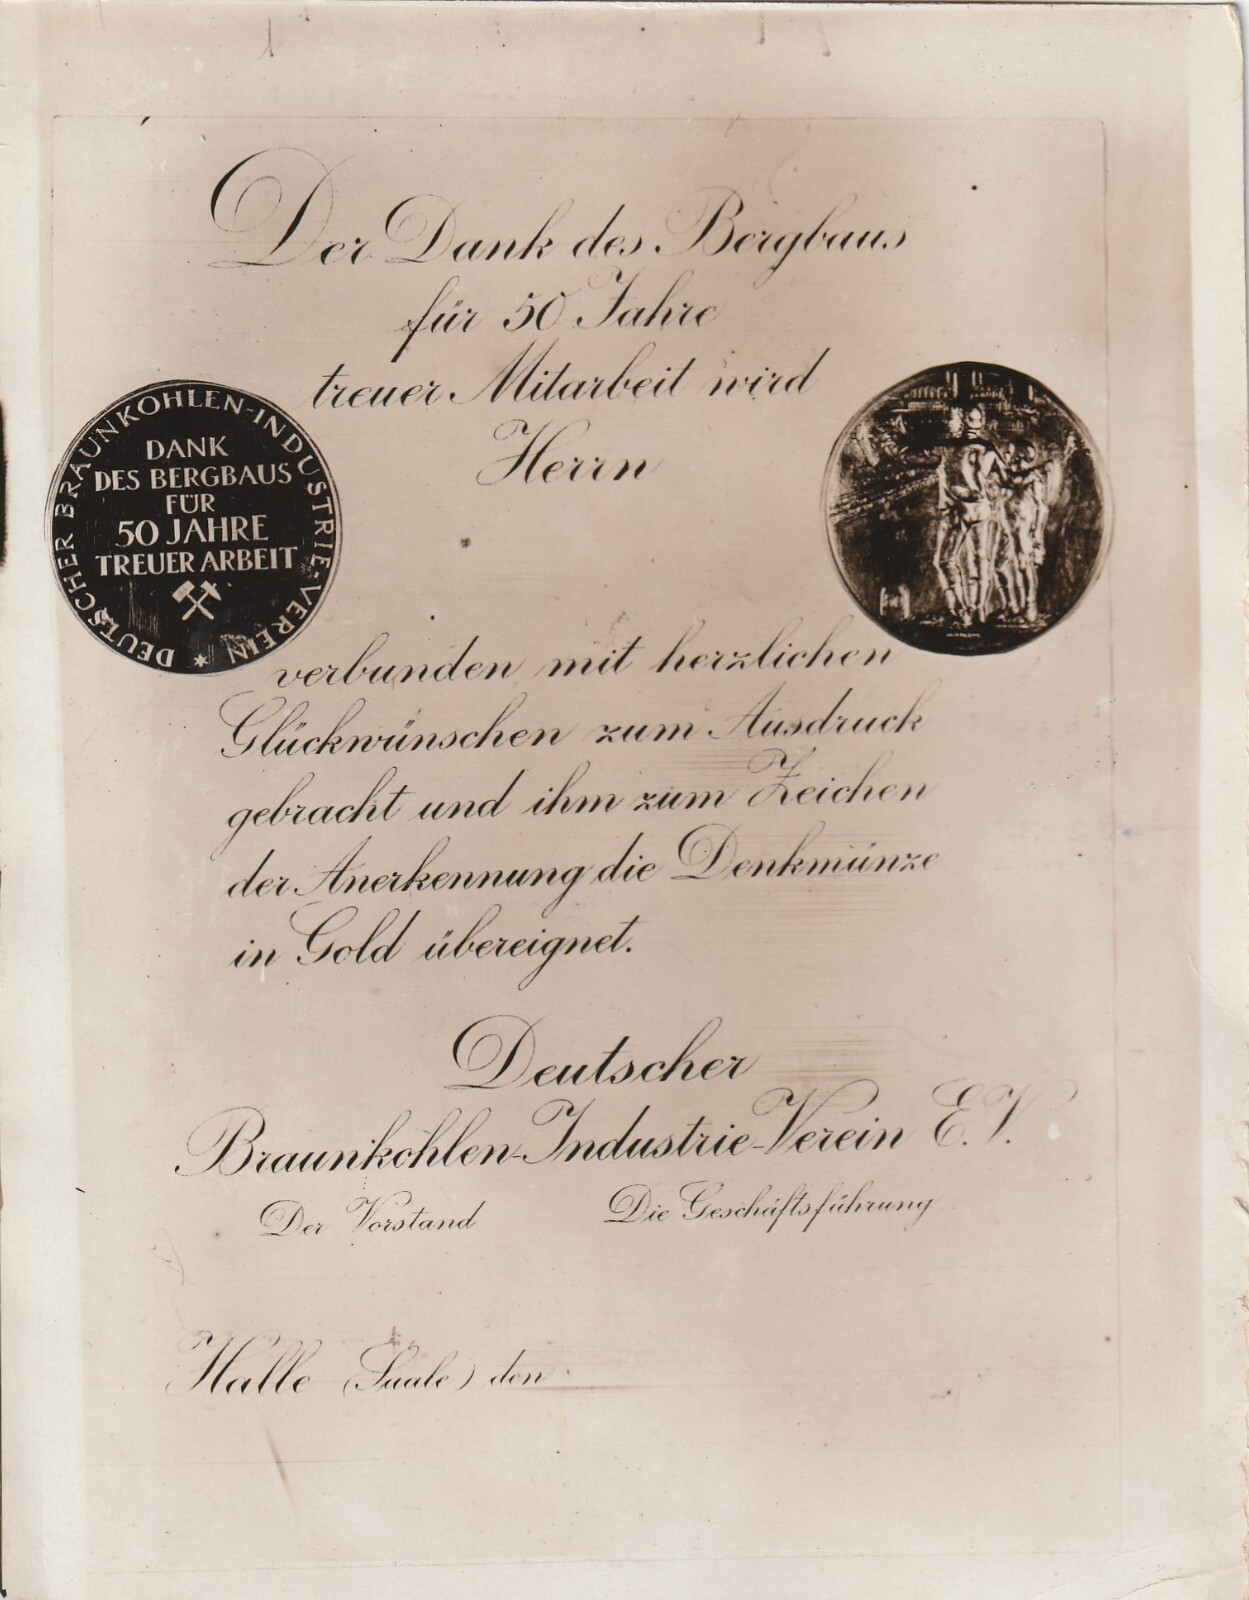 Der Dank des Bergbaus
für 50 Jahre
treuer Mitarbeit wird
Herrn
DEUTSCHER BRAUNKOHLEN-INDUSTRIE-VEREIN
DANK
DES BERGBAUS
FÜR
50 JAHRE
TREUER ARBEIT
verbunden mit herzlichen
Glückwünschen zum Ausdruck
gebracht und ihm zum Zeichen
der Anerkennung die Denkmünze
in Gold übereignet.
Deutscher
Braunkohlen-Industrie-Verein E.V.
Der Vorstand Die Geschäftsführung
Halle (Saale) den